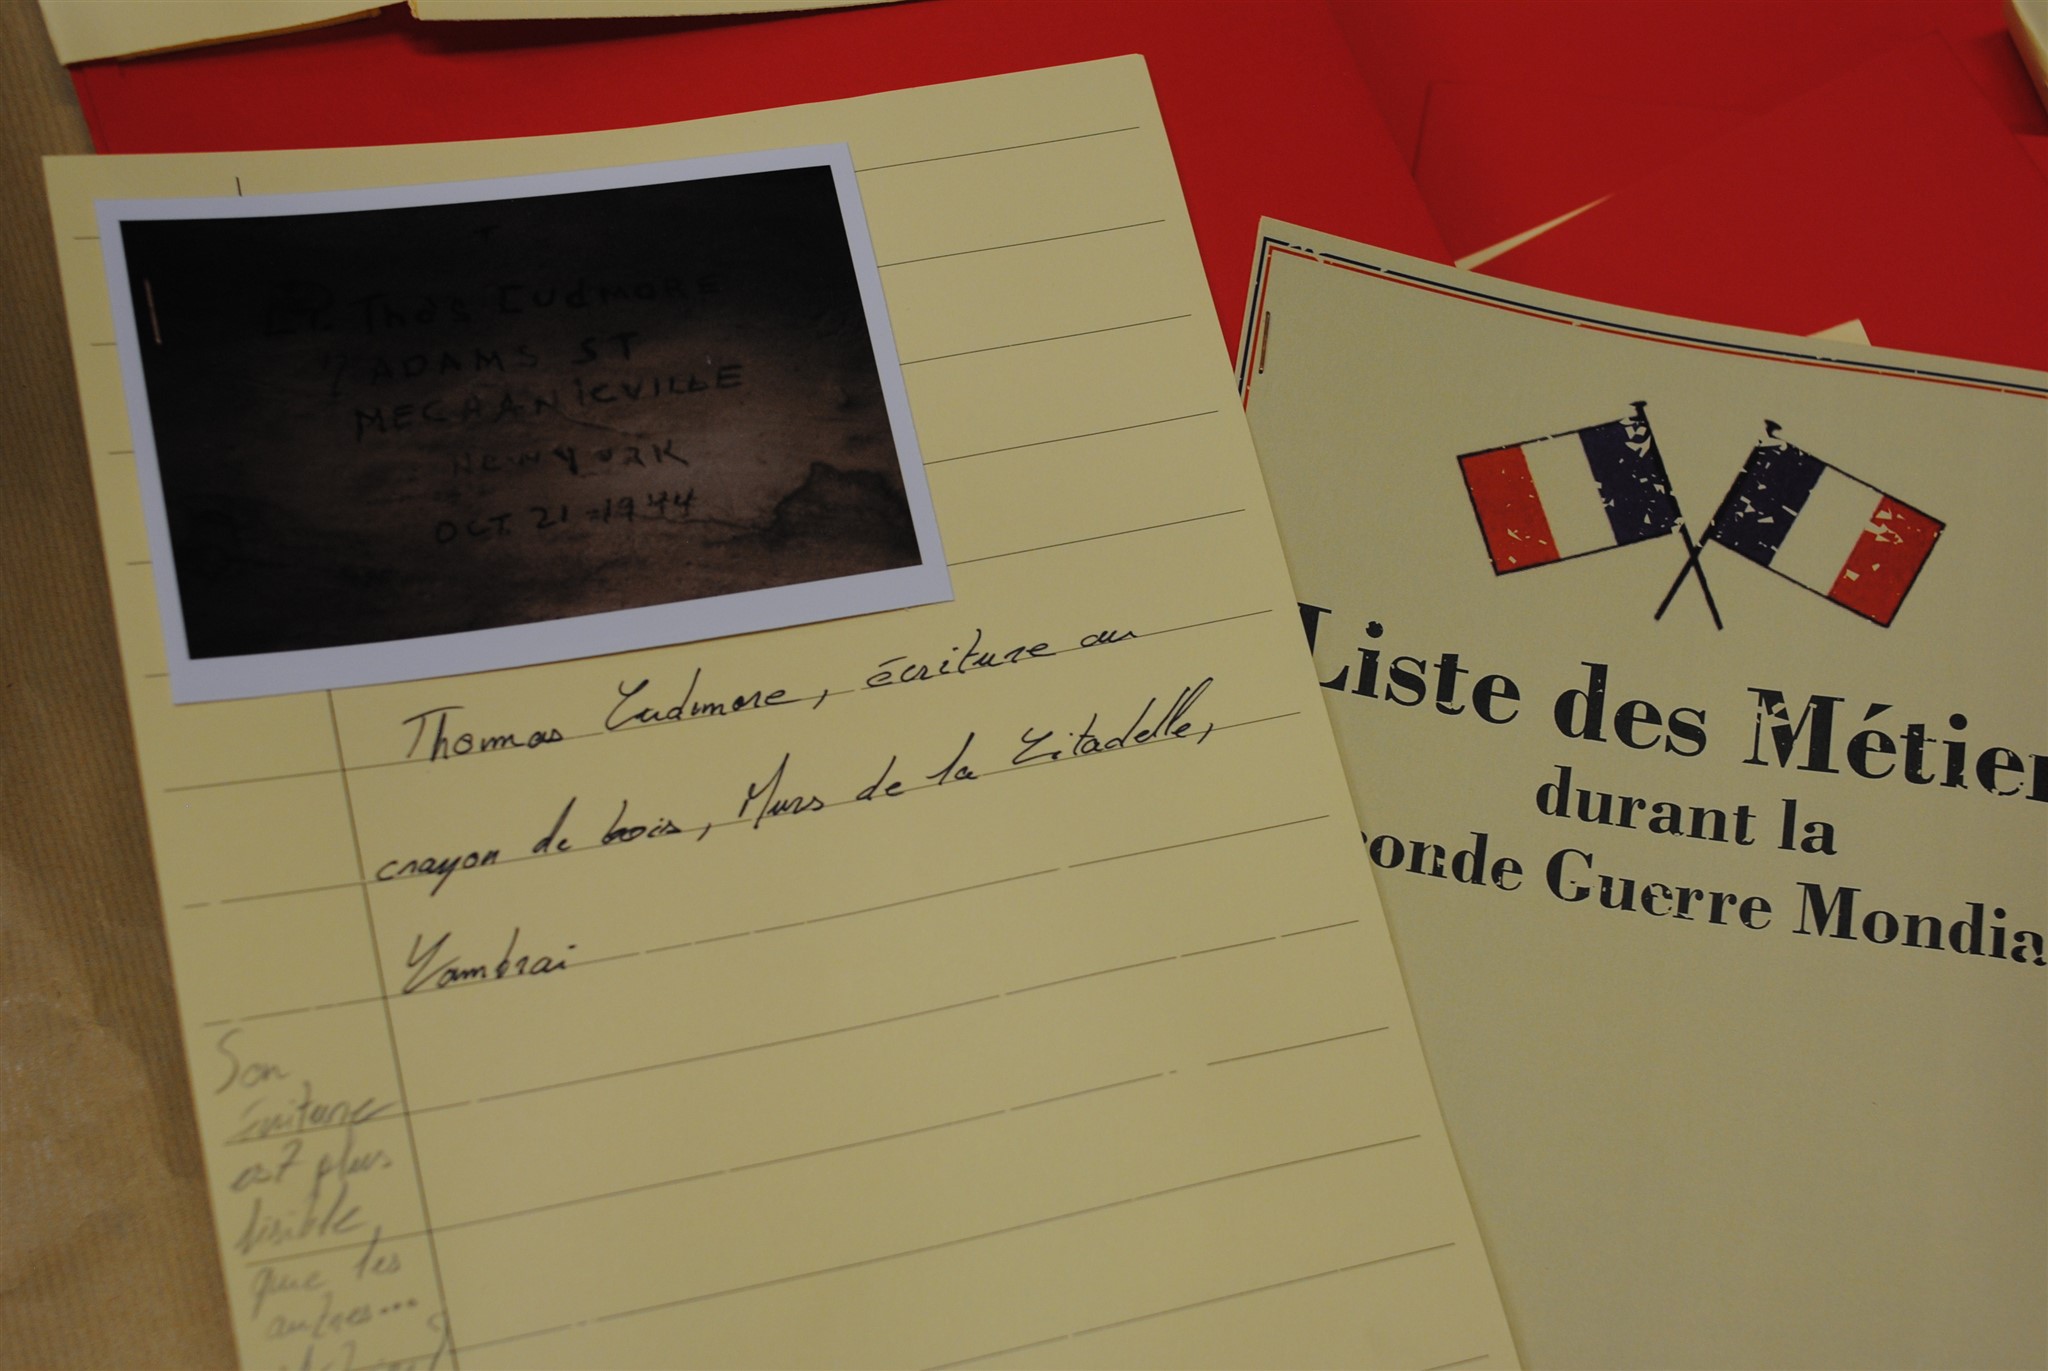 Thos Cudmore
ADAMS ST
MECHANICVILLE
NEW YORK
OCT. 21 - 1944
Thomas Cudmore, écriture au
crayon de bois, Murs de la Citadelle,
Cambrai
Son
écriture
est plus
lisible
que les
autres...
Liste des Métier
durant la
conde Guerre Mondia